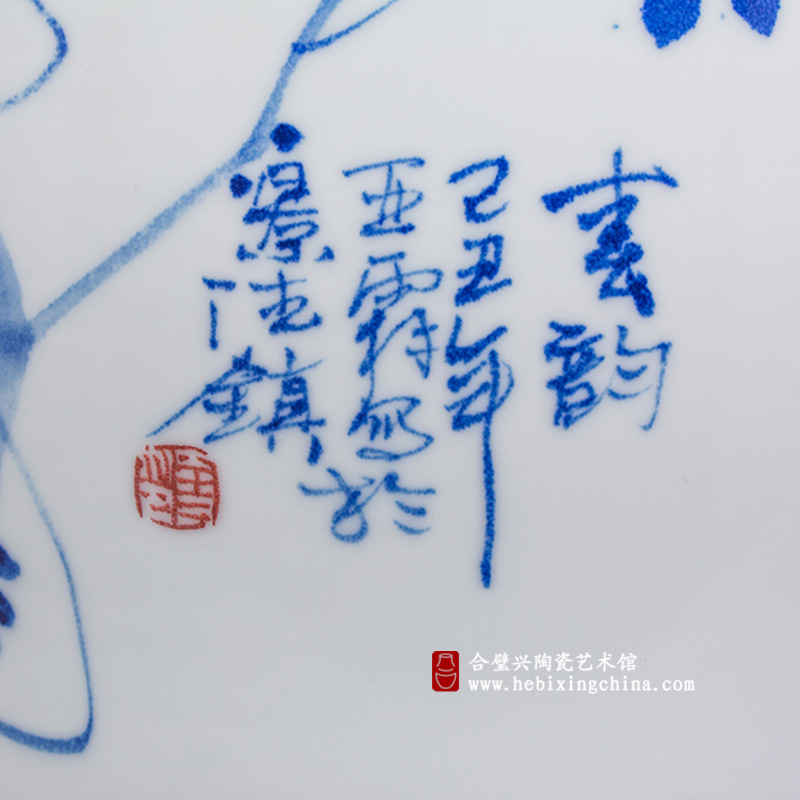 春韵
己丑年
亚霖写於
景德鎮
合璧兴陶瓷艺术馆
www.hebixingchina.com